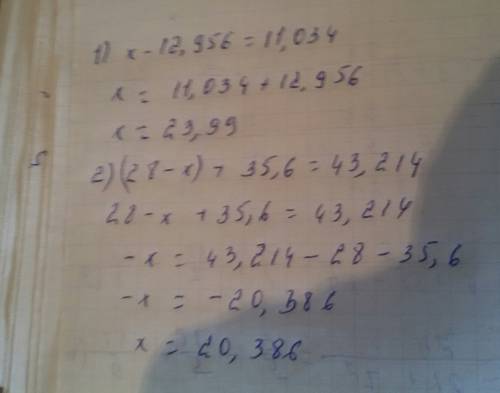 1) x - 12,956 = 11,034
x = 11,034 + 12,956
x = 23,99
2) (28 - x) + 35,6 = 43,214
28 - x + 35,6 = 43,214
-x = 43,214 - 28 - 35,6
-x = -20,386
x = 20,386